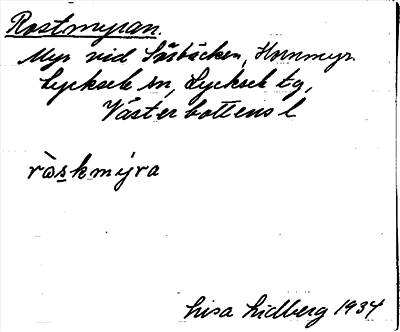 Rostmyran.
Myr vid Såsbäcken, Hornmyr
Lycksele sn, Lycksele tg,
Västerbottens l
ròskmýra
Lisa Lidberg 1934